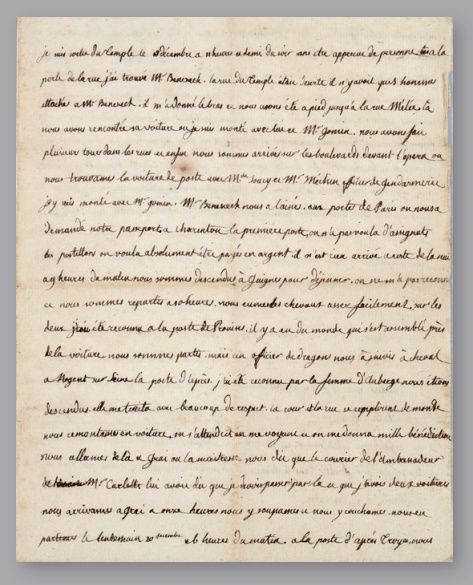 je suis sortie du Temple le décembre a 11 heures et demi du soir sans etre apperçue de personne a la
porte de la rue j'ai trouvé Mr Benezech. la rue du Temple était deserte il n'y avoit que homme
attaché a Mr Benezech. il m'a donné le bras et nous avons été a pied jusqu'a la rue Meslée, là
nous avons rencontré sa voiture où je suis monté avec lui et Mr Gomin. nous avons fait
plusieurs tours dans les rues et enfin nous sommes arrivés sur les boulevards devant l'opera ou
nous trouvames la voiture de poste avec Mme Soucy et Mr Mechin officier de gendarmerie
j'y suis monté avec Mr gomin. Mr Benezech nous a laissé. aux portes de Paris on nous a
demandé notre passeport. a charenton la premiere poste, on n'a pas voulu d'assignats
les postillons on voulu absolument être payés en argent. il n'est rien arrivé a reste de la nuit
a 9 heures du matin nous sommes descendus a Guignes pour déjeuner, on ne m'a pas reconnu
et nous sommes repartis a 10 heures. nous eumes des chevaux assez facilement. sur les
deux j'ai été reconnu a la poste de Provins. il y a eu du monde qui s'est rassemblé près
de la voiture. nous sommes partis. mais un officier de dragons nous a suivis a cheval
a Nogent sur Seine la poste d'après. j'ai été reconnu par la femme d'auberge nous étions
descendus. elle me traita avec beaucoup de respect. la cour et la rue se remplirent de monde
nous remontames en voiture, on s'attendrit en me voyant et on me donna mille bénédictions
nous allames de là a Grai ou la maitresse nous dit que le courrier de l'ambassadeur
de Mr Carletti lui avoit dit que je devois passer par là et que j'avois deux voitures
nous arrivames a grai a onze heures nous y soupames et nous y couchames. nous en
partimes le lendemain 20 decembre a 6 heures du matin. a la poste d'après Troyes, nous